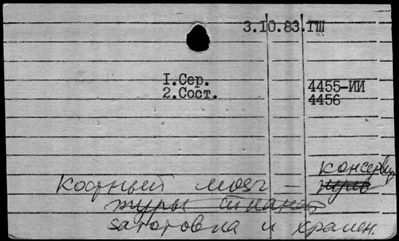 3.10.83.ГШ
1.Сер.
2.Сост.
4455-ИИ
4456
Костный мозг - консерв
заготовка и хранен.